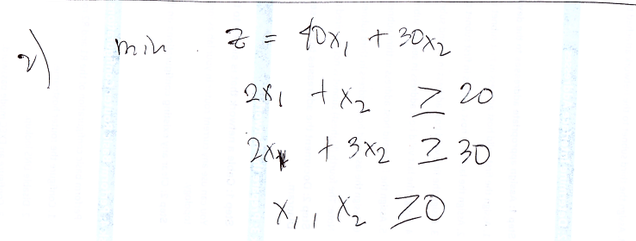 2) min z = 40x₁ + 30x₂
2x₁ + x₂ ≥ 20
2x₁ + 3x₂ ≥ 30
x₁, x₂ ≥ 0